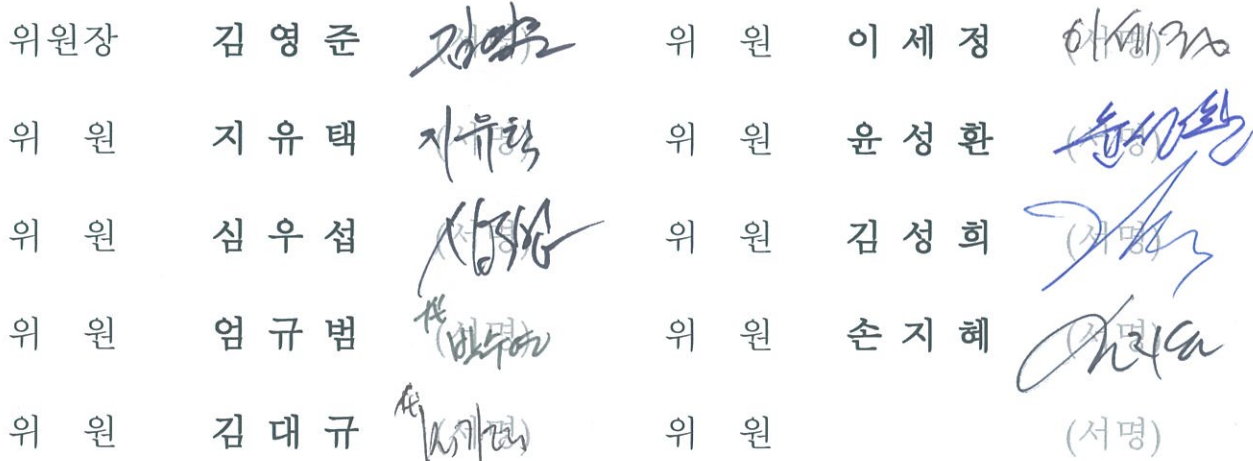 위원장 김 영 준 김영준 (서명) 위 원 이 세 정 이세정 (서명)
위 원 지 유 택 지유택 (서명) 위 원 윤 성 환 윤성환 (서명)
위 원 심 우 섭 (서명) 위 원 김 성 희 (서명)
위 원 엄 규 범 代 (서명) 위 원 손 지 혜 (서명)
위 원 김 대 규 代 (서명) 위 원 (서명)